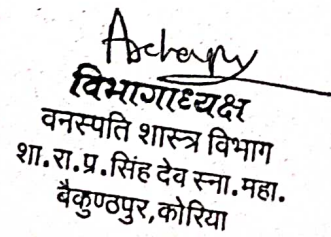 विभागाध्यक्ष
वनस्पति शास्त्र विभाग
शा.रा.प्र.सिंह देव स्ना.महा.
बैकुण्ठपुर,कोरिया